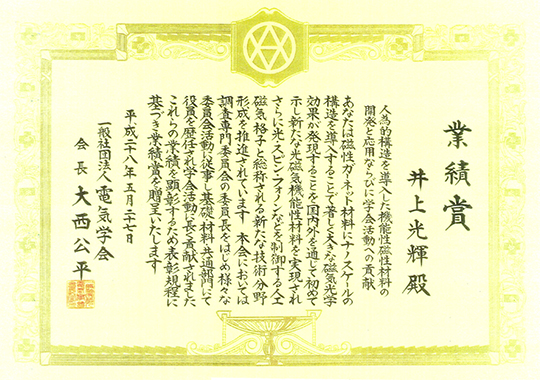 業績賞
井上光輝殿
人為的構造を導入した機能性磁性材料の
開発と応用ならびに学会活動への貢献
あなたは磁性ガーネット材料にナノスケールの
構造を導入することで著しく大きな磁気光学
効果が発現することを国内外を通じて初めて
示し新たな光磁気機能性材料を実現され
さらに光、スピン、フォノンなどを制御する人工
磁気格子と総称される新たな技術分野
形成を推進されています 本会においては
調査専門委員会の委員長をはじめ様々な
委員会活動に従事し基礎・材料・共通部門にて
役員を歴任され学会活動に長く貢献されました
これらの業績を顕彰するため表彰規程に
基づき業績賞を贈呈いたします
平成二十八年五月二十七日
一般社団法人 電気学会
会長 大西公平